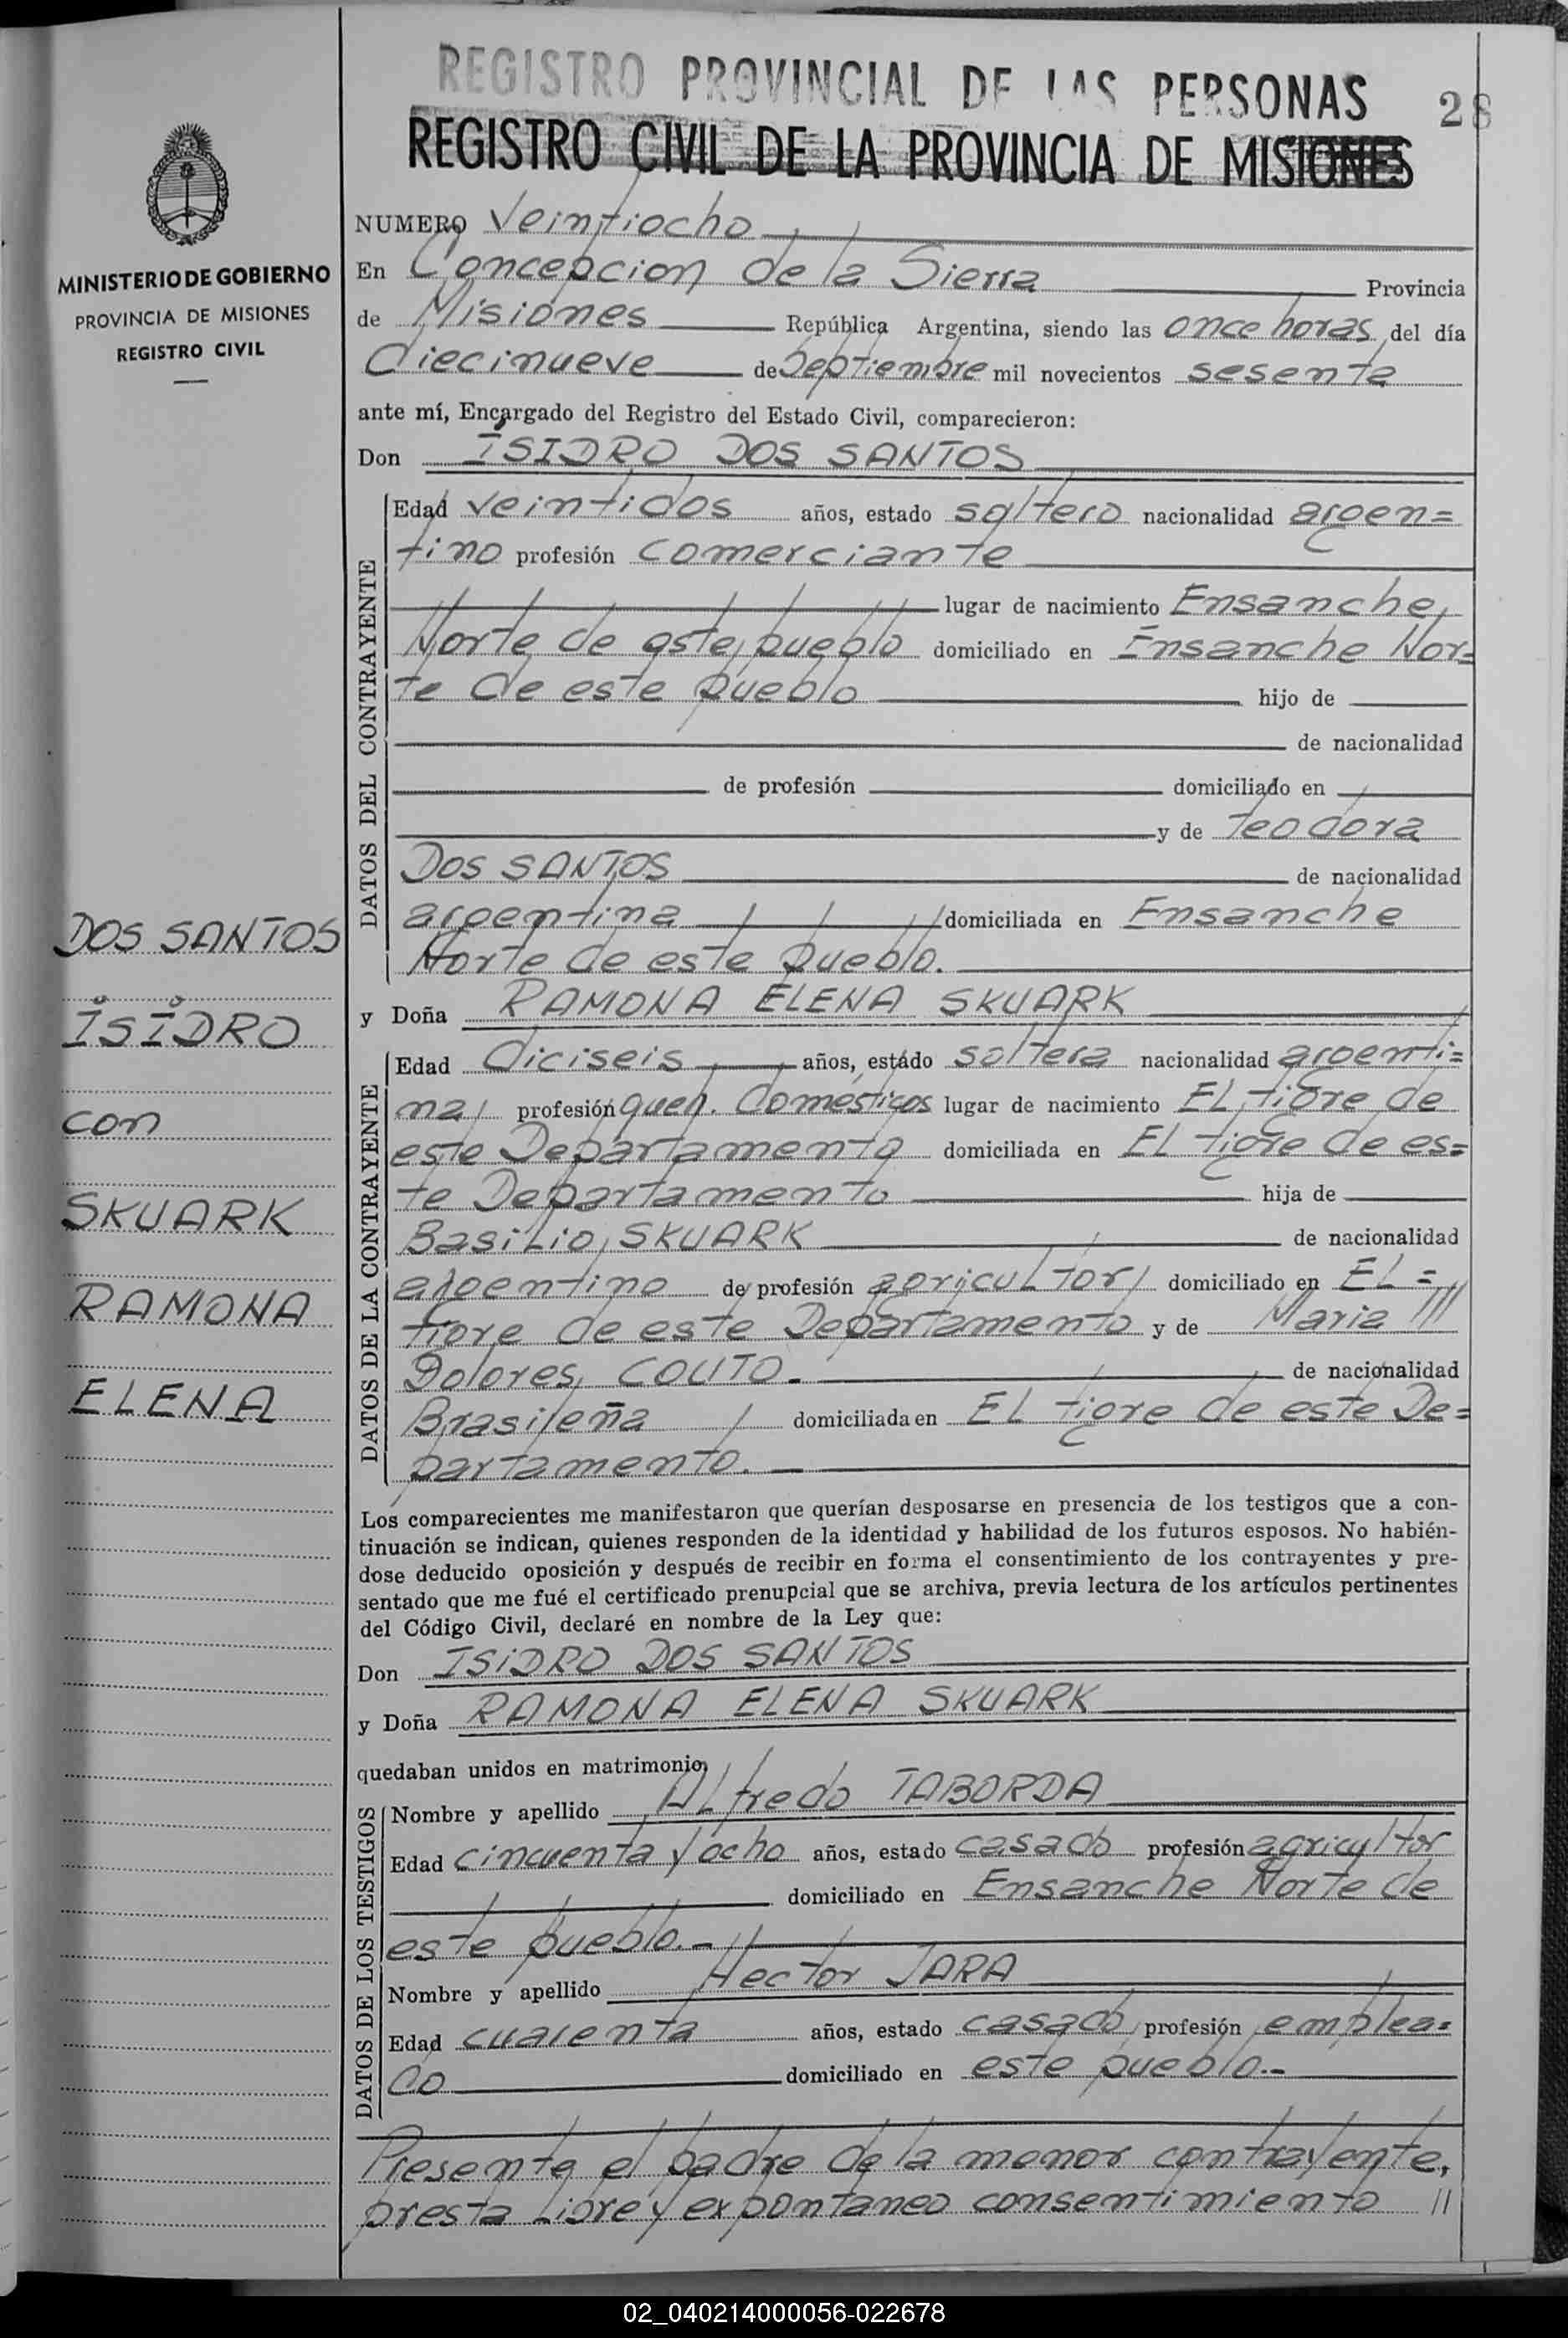 REGISTRO PROVINCIAL DE LAS PERSONAS
28
REGISTRO CIVIL DE LA PROVINCIA DE MISIONES
MINISTERIO DE GOBIERNO
PROVINCIA DE MISIONES
REGISTRO CIVIL
DOS SANTOS
ISIDRO
con
SKUARK
RAMONA
ELENA
NUMERO Veintiocho
En Concepcion de la Sierra Provincia
de Misiones República Argentina, siendo las once horas del día
diecinueve de Septiembre mil novecientos sesenta
ante mí, Encargado del Registro del Estado Civil, comparecieron:
Don ISIDRO DOS SANTOS
DATOS DEL CONTRAYENTE
Edad veintidos años, estado soltero nacionalidad argen=
tino profesión comerciante
lugar de nacimiento Ensanche
Norte de este pueblo domiciliado en Ensanche Nor=
te de este pueblo hijo de
de nacionalidad
de profesión domiciliado en
y de Teodora
DOS SANTOS de nacionalidad
argentina domiciliada en Ensanche
Norte de este pueblo.
y Doña RAMONA ELENA SKUARK
DATOS DE LA CONTRAYENTE
Edad diciseis años, estado soltera nacionalidad argenti=
na profesión queh. domésticos lugar de nacimiento El tigre de
este Departamento domiciliada en El tigre de es=
te Departamento hija de
Basilio SKUARK de nacionalidad
argentino de profesión agricultor domiciliado en EL =
tigre de este Departamento y de Maria ///
Dolores COUTO.- de nacionalidad
Brasileña domiciliada en El tigre de este De=
partamento.-
Los comparecientes me manifestaron que querían desposarse en presencia de los testigos que a con-
tinuación se indican, quienes responden de la identidad y habilidad de los futuros esposos. No habién-
dose deducido oposición y después de recibir en forma el consentimiento de los contrayentes y pre-
sentado que me fué el certificado prenupcial que se archiva, previa lectura de los artículos pertinentes
del Código Civil, declaré en nombre de la Ley que:
Don ISIDRO DOS SANTOS
y Doña RAMONA ELENA SKUARK
quedaban unidos en matrimonio,
DATOS DE LOS TESTIGOS
Nombre y apellido Alfredo TABORDA
Edad cincuenta y ocho años, estado casado profesión agricultor
domiciliado en Ensanche Norte de
este pueblo.-
Nombre y apellido Hector JARA
Edad cuarenta años, estado casado profesión emplea=
do domiciliado en este pueblo.-
Presente el padre de la menor contrayente,
presta libre y expontaneo consentimiento //
02_040214000056-022678